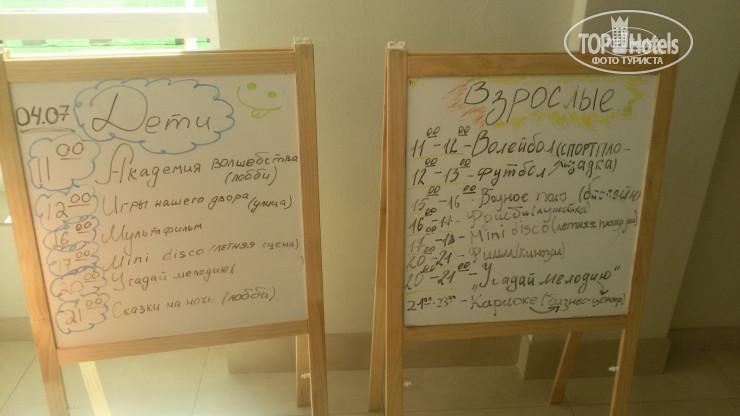 04.07
Дети
11 00 Академия волшебства
(лобби)
12 00 Игры нашего двора (улица)
16 00 Мультфильм
17 00 Mini disco (летняя сцена)
20 00 Угадай мелодию
21 00 Сказки на ночь (лобби)
Взрослые
11 00 - 12 00 - Волейбол (спортпло-
12 00 - 13 00 - Футбол щадка)
15 00 - 16 00 - Водное поло (бассейн)
16 00 - 17 - Фрисби
17 - 18 - Mini disco (летняя
20 - 21 - Фильм (кинозал)
20 00 - 21 00 - "Угадай мелодию"
21 00 - 23 00 - Караоке (бизнес-центр)
TOP Hotels
ФОТО ТУРИСТА